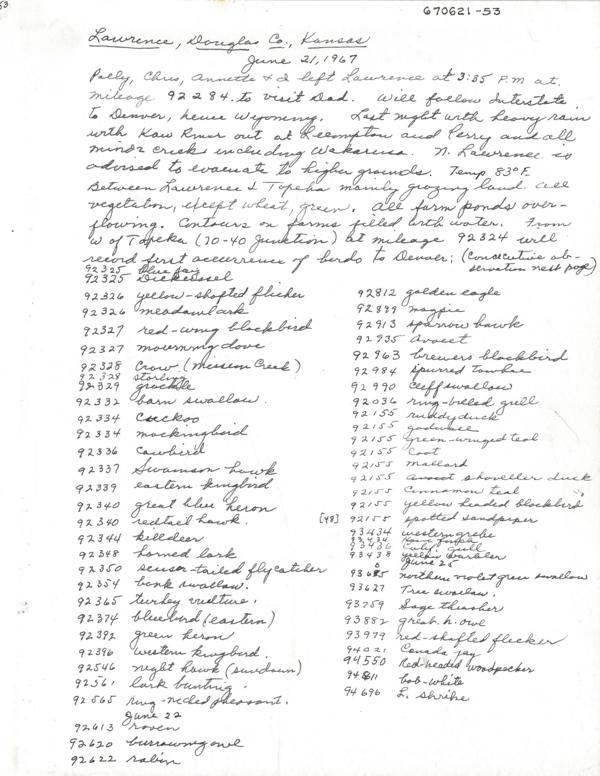 53
670621-53
Lawrence, Douglas Co., Kansas
June 21, 1967
Polly, Chris, Annette & I left Lawrence at 3:35 P.M. at
mileage 92284. to visit Dad. Will follow Interstate
to Denver, hence Wyoming. Last night with heavy rain
with Kaw River out at Lecompton and Perry and all
minor creek including Wakarusa. N. Lawrence is
advised to evacuate to higher grounds. Temp 83° F.
Between Lawrence & Topeka mainly grazing land. All
vegetation, except wheat, green. All farm ponds over-
flowing. Contours on farms filled with water. From
W of Topeka (70-40 Junction) at mileage 92324 will
record first occurrence of birds to Denver; (Consecutive ob-
servation next page)
92325 blue jay
92325 Dickcissel
92326 yellow-shafted flicker
92326 meadowlark
92327 red-wing blackbird
92327 mourning dove
92328 Crow (Mission Creek)
92328 starling
92329 grackle
92332 barn swallow.
92334 Cuckoo
92334 mockingbird
92336 Cowbird
92337 Swainson hawk
92339 eastern kingbird
92340 great blue heron
92340 redtail hawk.
92344 killdeer
92348 horned lark
92350 scissor-tailed flycatcher
92354 bank swallow.
92365 turkey vulture.
92374 bluebird (eastern)
92392 green heron
92396 western kingbird.
92546 night hawk (sundown)
92561 lark bunting.
92565 ring-necked pheasant.
June 22
92613 raven
92620 burrowing owl
92622 robin
92812 golden eagle
92899 magpie
92913 sparrow hawk
92935 Avocet
92963 brewers blackbird
92984 spurred towhee
92990 cliff swallow
92036 ring-billed gull
92155 ruddy duck
92155 gadwall
92155 green-winged teal
92155 Coot
92155 mallard
92155 Avocet shoveller duck
92155 Cinnamon teal
92155 yellow headed blackbird
[48] 92155 spotted sandpiper
93434 western grebe
93434
93436 Calif. gull
93438 yellow warbler
June 25
93685 northern violet green swallow
93627 Tree swallow.
93759 Sage thrasher
93882 great h. owl
93979 red-shafted flicker
94021 Canada jay
94550 Red-headed woodpecker
94811 bob-white
94696 L. shrike